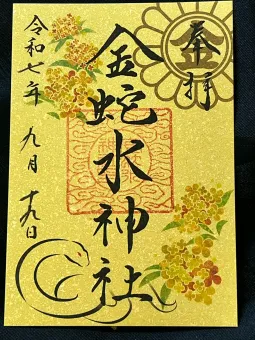 奉拝
金
金蛇水神社
令和七年
九月
十九日